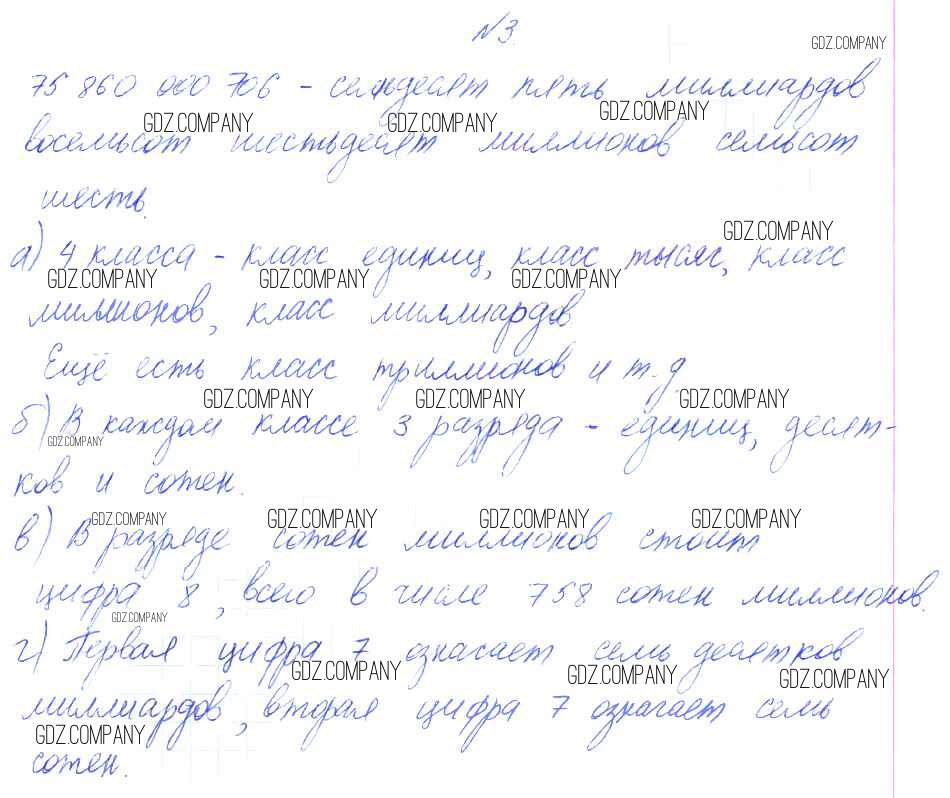 №3.
GDZ.COMPANY
75 860 000 706 - семьдесят пять миллиардов
GDZ.COMPANY GDZ.COMPANY GDZ.COMPANY
восемьсот шестьдесят миллионов семьсот
шесть.
GDZ.COMPANY
а) 4 класса - класс единиц, класс тысяч, класс
GDZ.COMPANY GDZ.COMPANY GDZ.COMPANY
миллионов, класс миллиардов
Ещё есть класс триллионов и т.д
GDZ.COMPANY GDZ.COMPANY GDZ.COMPANY
б) В каждом классе 3 разряда - единиц, десят-
GDZ.COMPANY
ков и сотен.
GDZ.COMPANY GDZ.COMPANY GDZ.COMPANY GDZ.COMPANY
в) В разряде сотен миллионов стоит
цифра 8, всего в числе 758 сотен миллионов.
GDZ.COMPANY
г) Первая цифра 7 означает семь десятков
GDZ.COMPANY GDZ.COMPANY GDZ.COMPANY
миллиардов, вторая цифра 7 означает семь
GDZ.COMPANY
сотен.